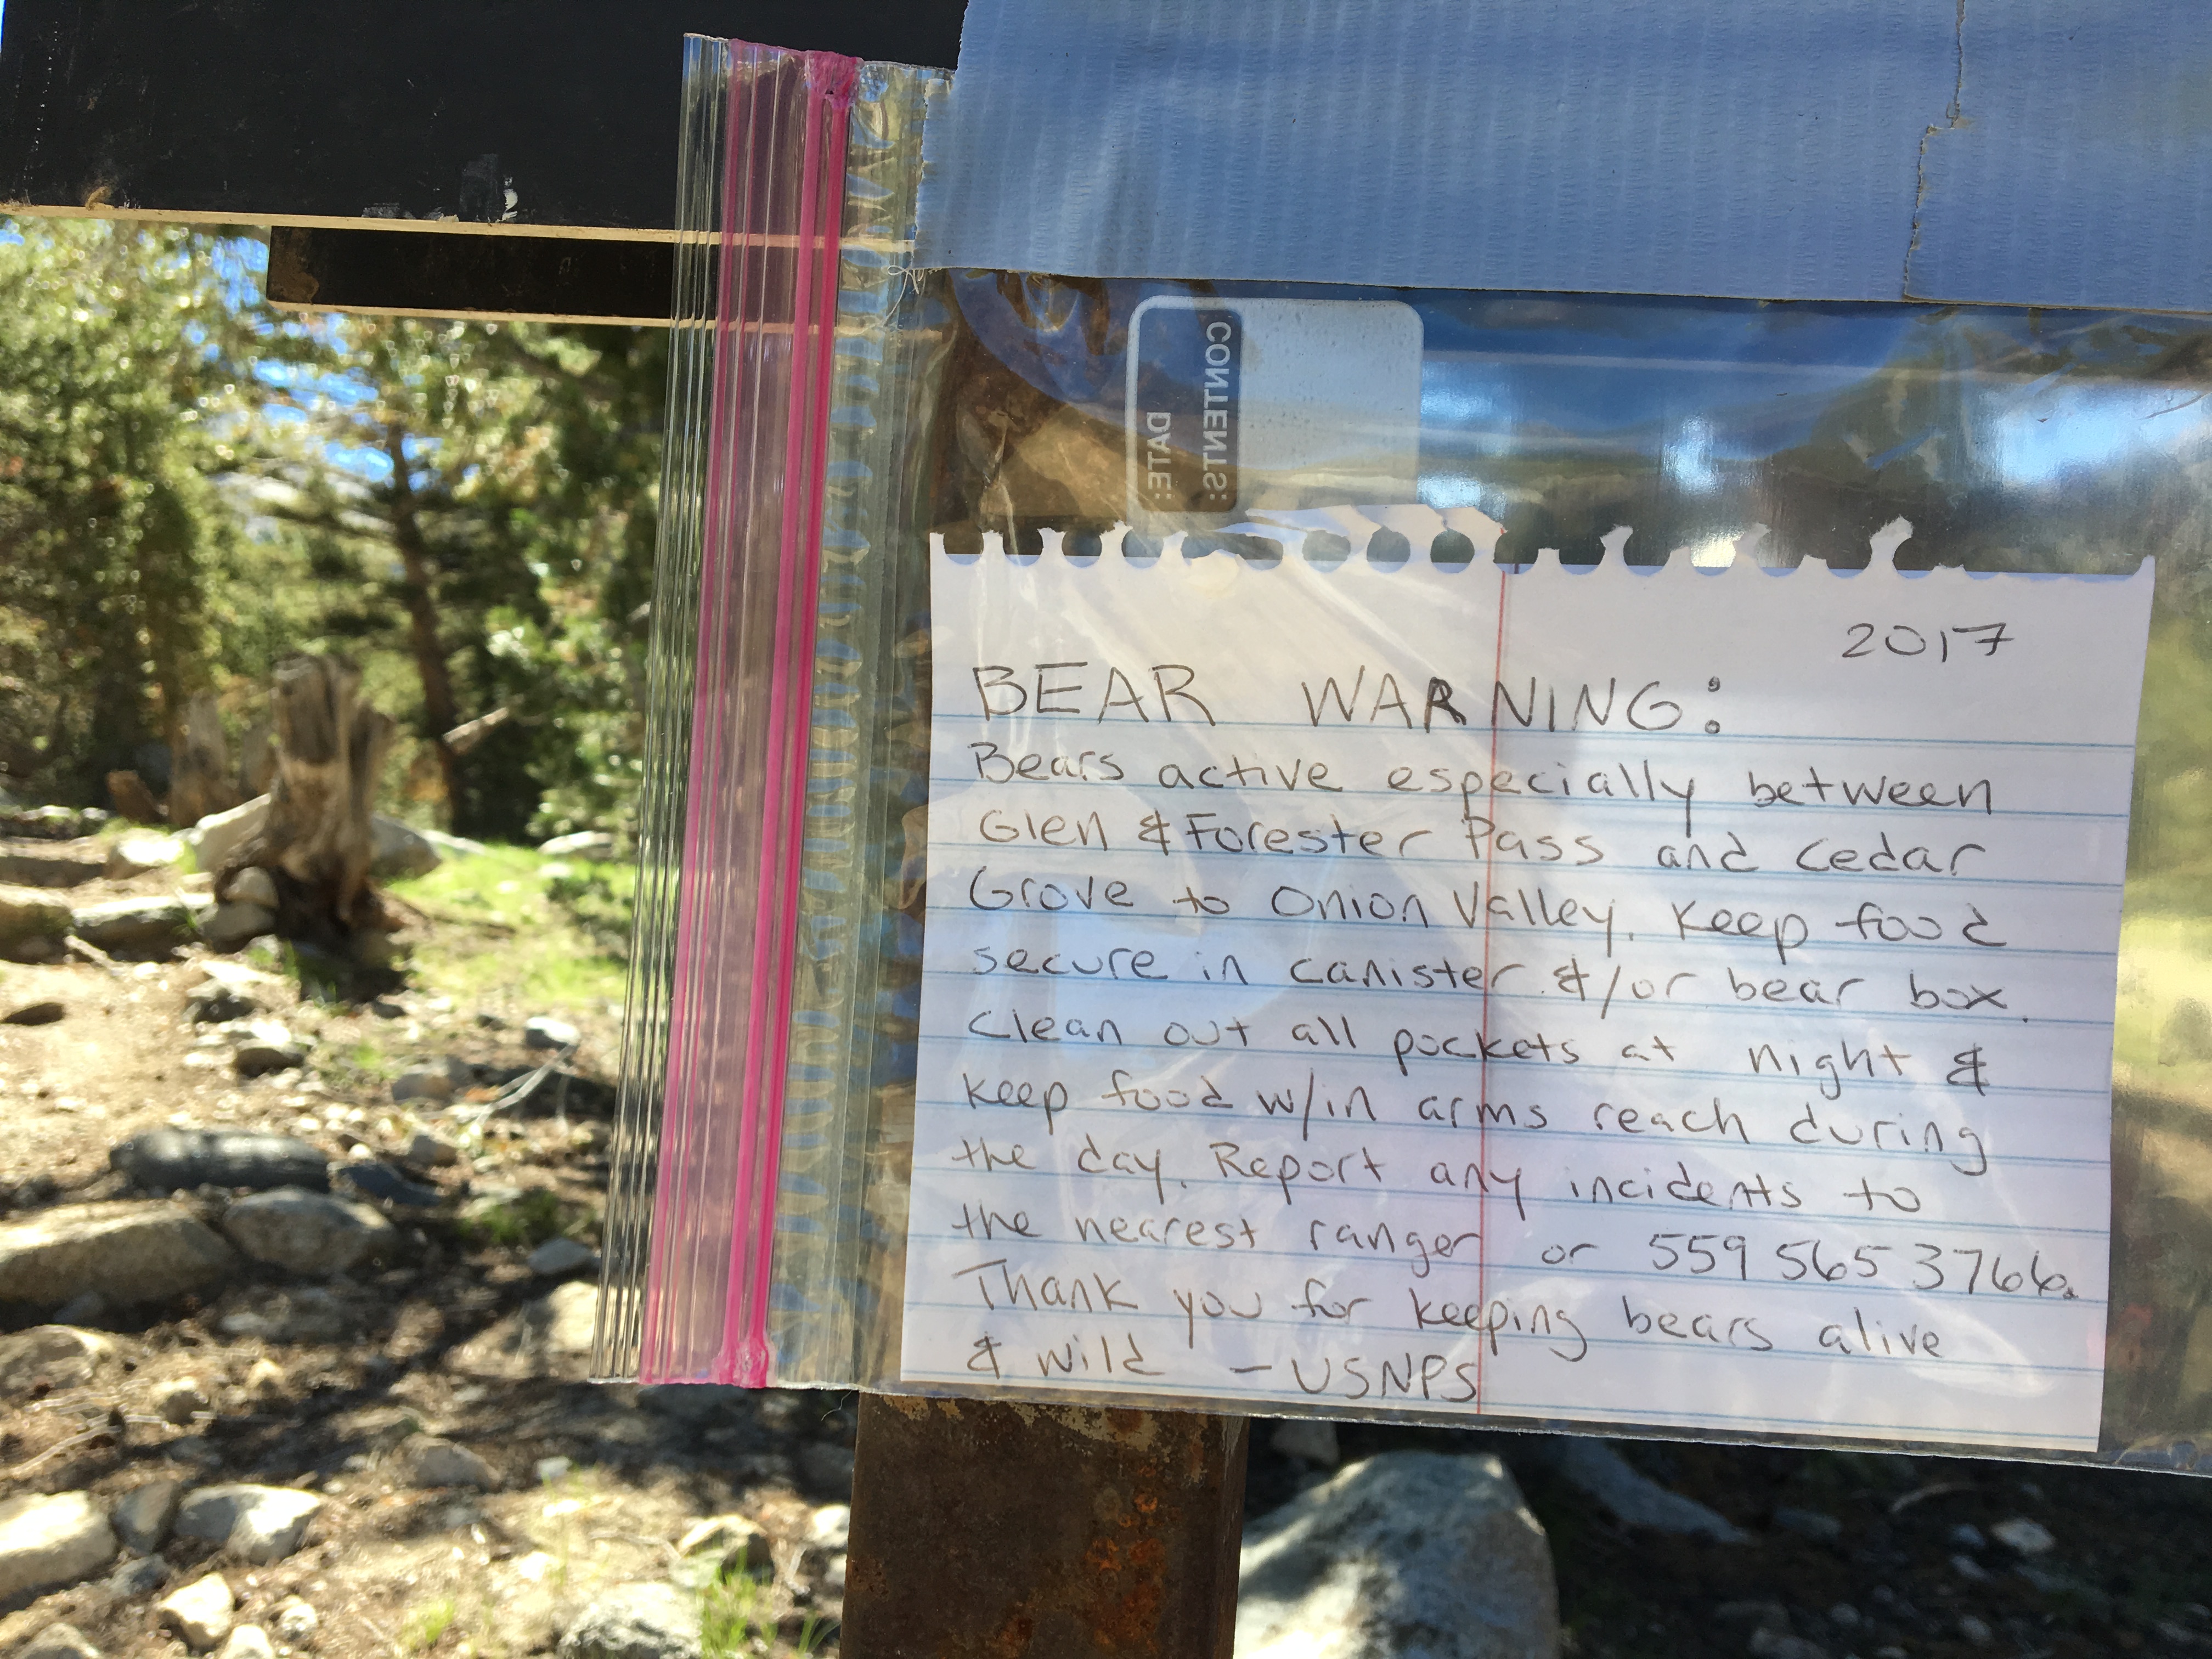 CONTENTS:
DATE:
2017
BEAR WARNING:
Bears active especially between
Glen & Forester Pass and Cedar
Grove to Onion Valley. Keep food
secure in canister &/or bear box.
Clean out all pockets at night &
keep food w/in arms reach during
the day. Report any incidents to
the nearest ranger or 559 565 3766.
Thank you for keeping bears alive
& wild - USNPS